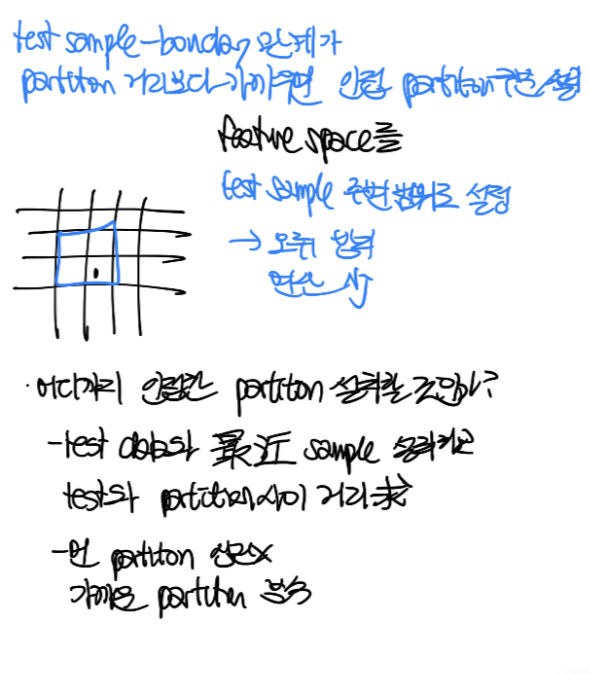 test sample-bonday 관계가
partiton 거리보다 가까우면 인접 partiton 구분 설정
feature space를
test sample 주변 범위로 설정
→ 오류 방지
연산 ↓
· 어디까지 인접한 partiton
-test data와 最近 sample
test와 partition 사이 거리求
-먼 partiton x
가까운 partiton